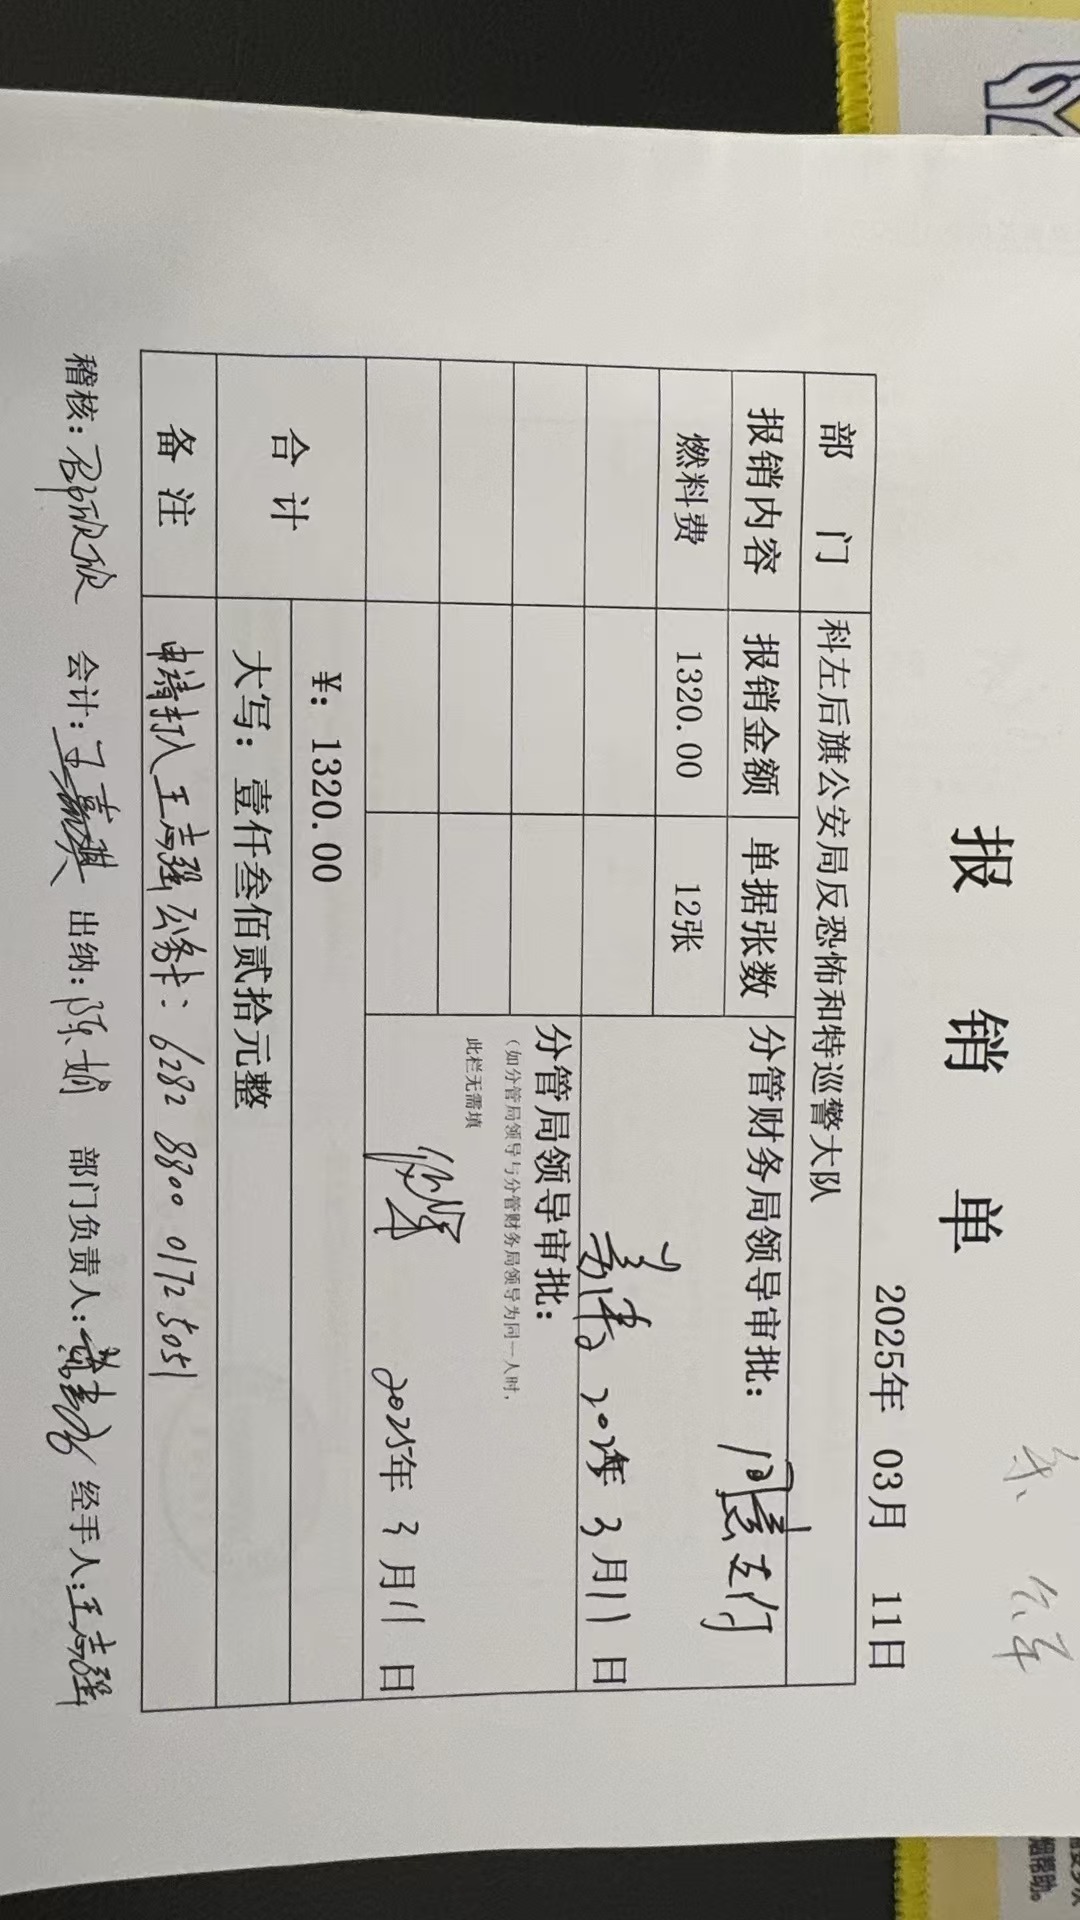 报 销 单
2025年 03月 11日
部 门 科左后旗公安局反恐怖和特巡警大队
报销内容 报销金额 单据张数 分管财务局领导审批:
燃料费 1320.00 12张
2025年 3月11日
分管局领导审批:
(如分管局领导与分管财务局领导为同一人时,
此栏无需填
2025年 3月11日
合 计 ¥: 1320.00
大写: 壹仟叁佰贰拾元整
备 注 申请打入王志强公务卡: 6282 8800 0172 5051
稽核: 会计: 王嘉淇 出纳: 陈娟 部门负责人: 经手人: 王志强
烟帮助。